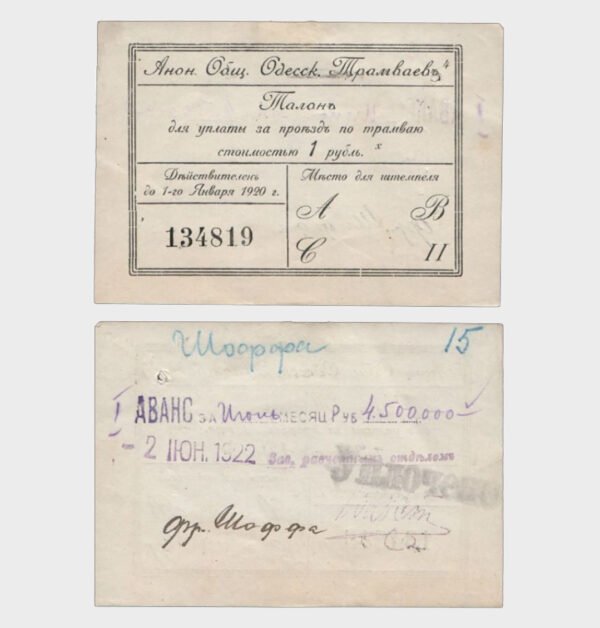 Анон. Общ. Одесск. Трамваевъ
Талонъ
для уплаты за проѣздъ по трамваю
стоимостью 1 рубль.
Дѣйствителенъ
до 1-го Января 1920 г.
134819
Мѣсто для штемпеля
А В
С П
Шоффа 15
I АВАНС за Июнь МЕСЯЦ Руб 4.500.000
- 2 ІЮН. 1922 Зав. расчетнымъ отдѣломъ
фр. Шоффа